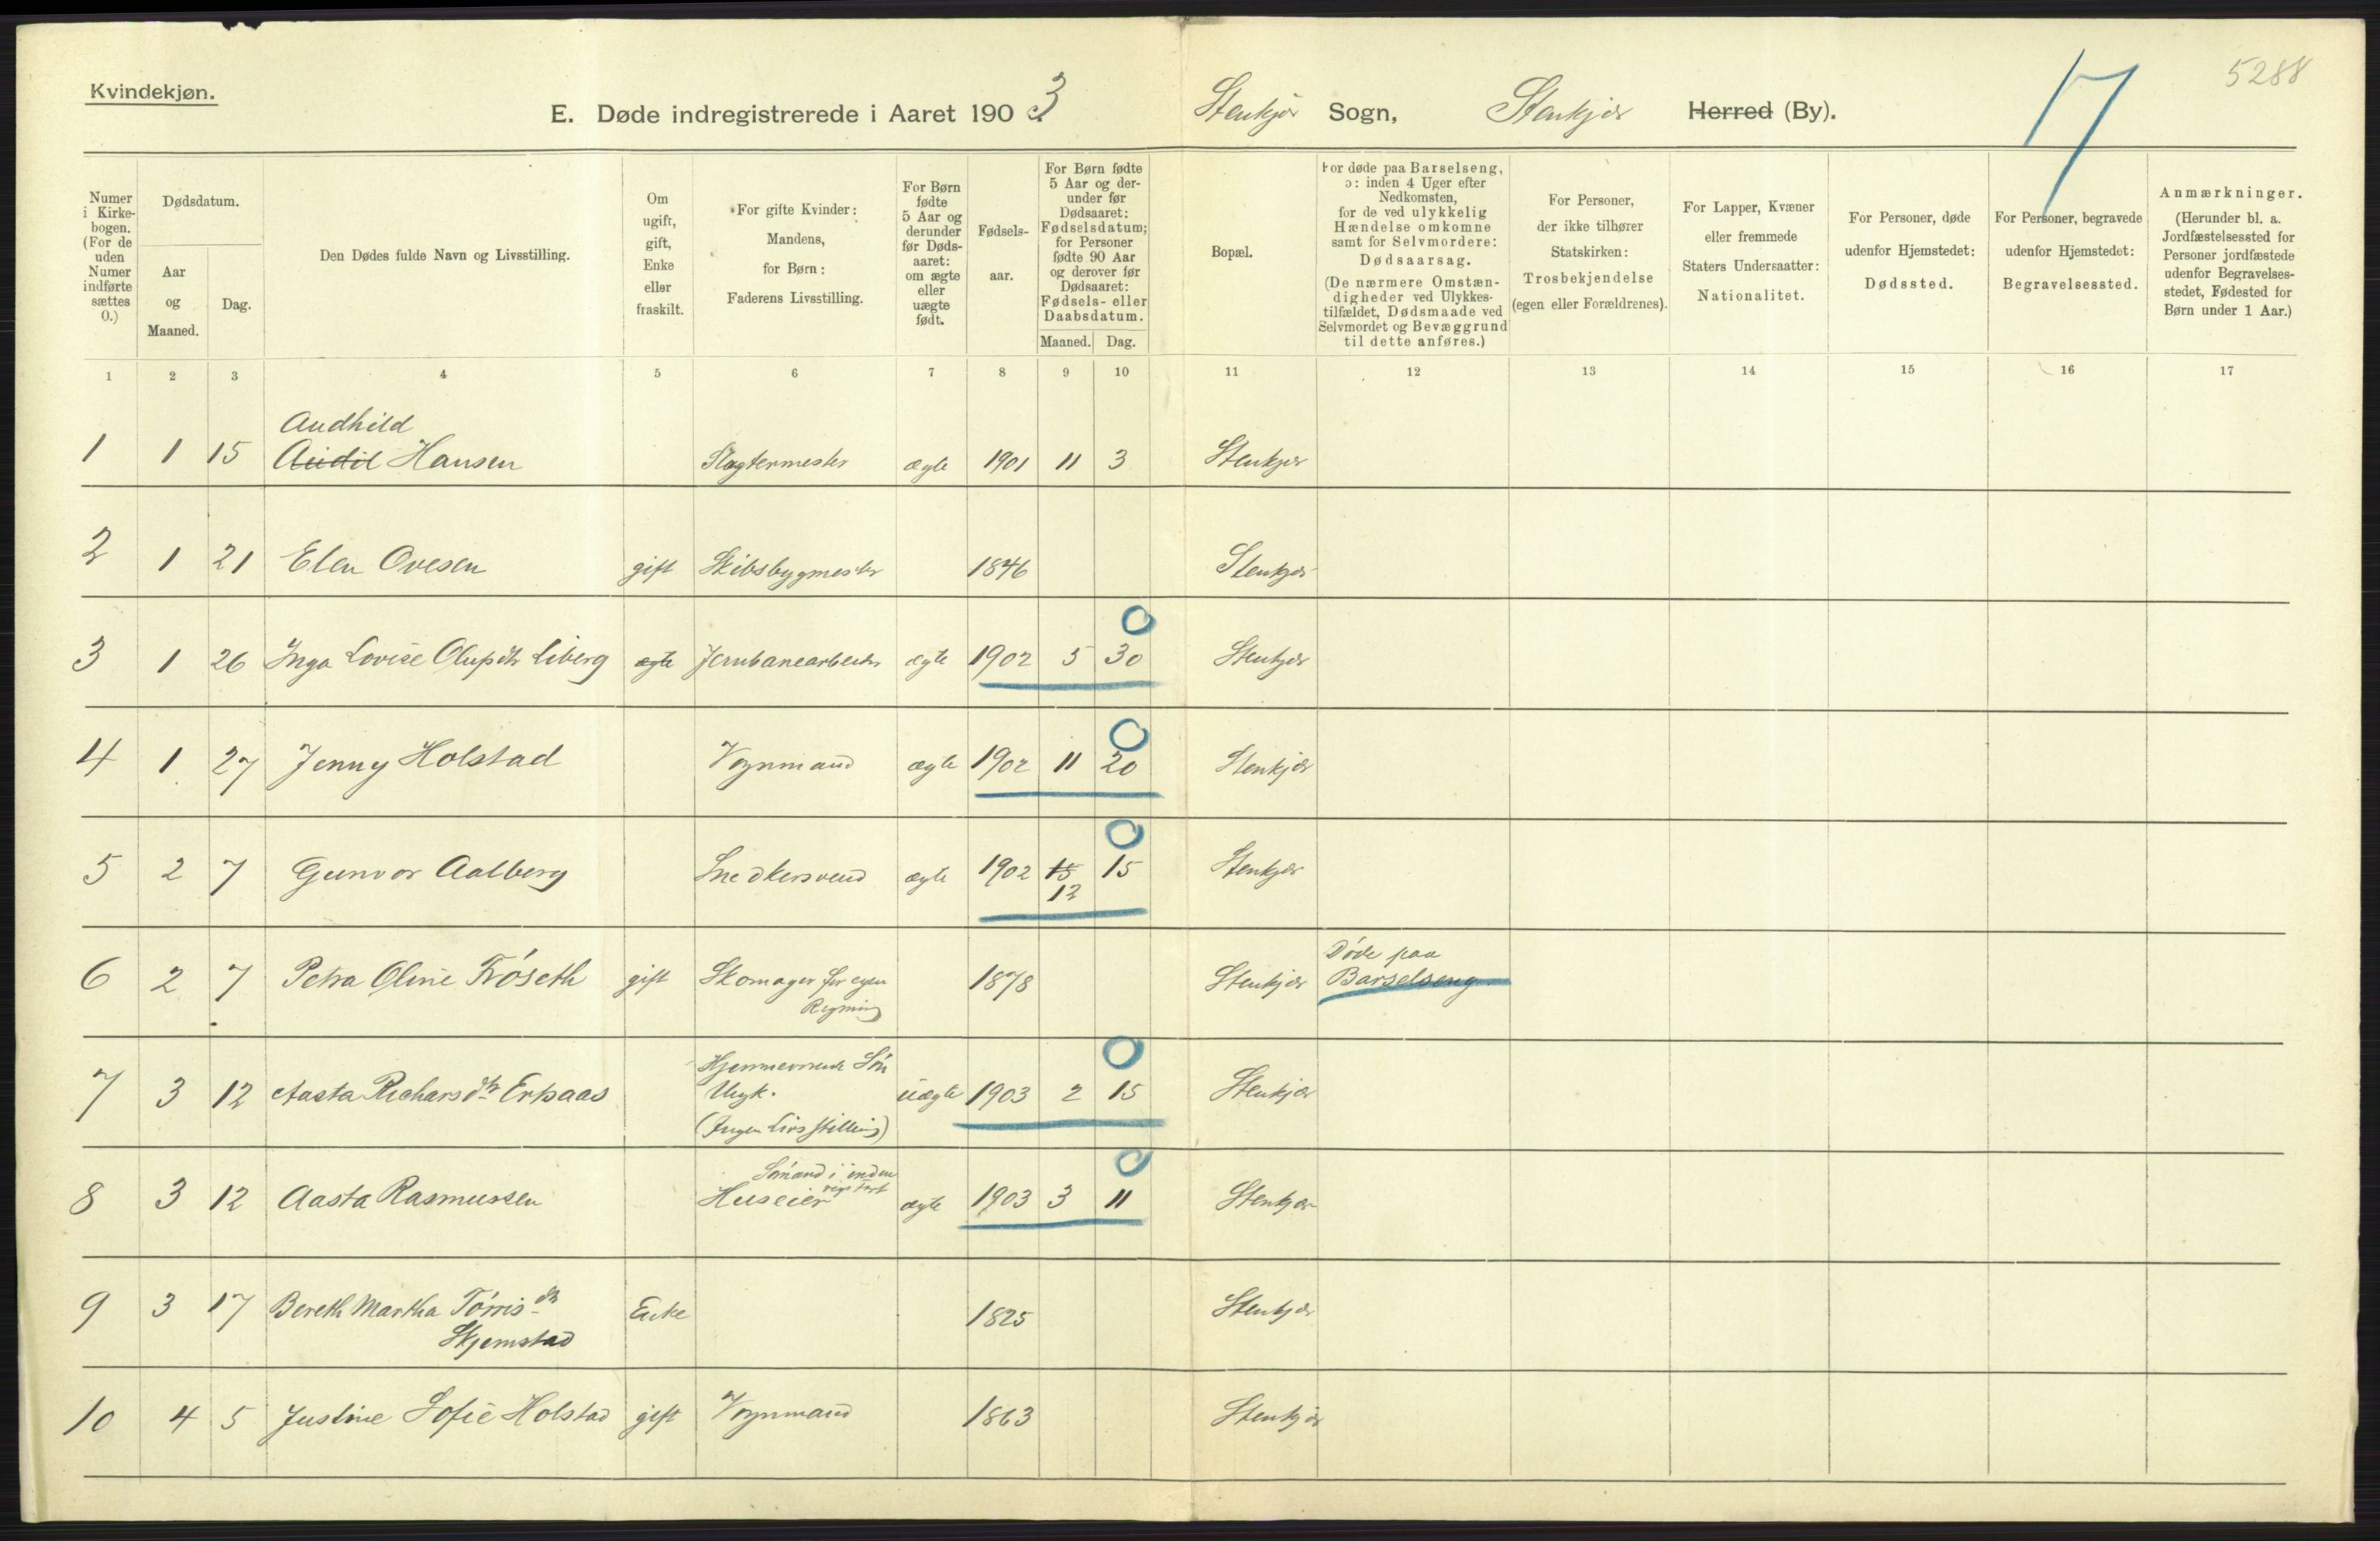 Kvindekjøn.
E. Døde indregistrerede i Aaret 1903 Stenkjær Sogn, Stenkjær Herred (By).
17
5288
Numer i Kirkebogen. (For de uden Numer indførte sættes 0.)
Dødsdatum.
Aar og Maaned.
Dag.
Den Dødes fulde Navn og Livsstilling.
Om ugift, gift, Enke eller fraskilt.
For gifte Kvinder: Mandens, for Børn: Faderens Livsstilling.
For Børn fødte 5 Aar og derunder før Dødsaaret: om ægte eller uægte født.
Fødselsaar.
For Børn fødte 5 Aar og derunder før Dødsaaret: Fødselsdatum; for Personer fødte 90 Aar og derover før Dødsaaret: Fødsels- eller Daabsdatum.
Maaned. Dag.
Bopæl.
For døde paa Barselseng, ɔ: inden 4 Uger efter Nedkomsten, for de ved ulykkelig Hændelse omkomne samt for Selvmordere: Dødsaarsag.
(De nærmere Omstændigheder ved Ulykkestilfældet, Dødsmaade ved Selvmordet og Bevæggrund til dette anføres.)
For Personer, der ikke tilhører Statskirken: Trosbekjendelse (egen eller Forældrenes).
For Lapper, Kvæner eller fremmede Staters Undersaatter: Nationalitet.
For Personer, døde udenfor Hjemstedet: Dødssted.
For Personer, begravede udenfor Hjemstedet: Begravelsessted.
Anmærkninger. (Herunder bl. a. Jordfæstelsessted for Personer jordfæstede udenfor Begravelsesstedet, Fødested for Børn under 1 Aar.)
1 2 3 4 5 6 7 8 9 10 11 12 13 14 15 16 17
Audhild
1 1 15 Audil Hansen Slagtermester ægte 1901 11 3 Stenkjær
2 1 21 Elen Ovesen gift Skibsbygmester 1846 Stenkjær
0
3 1 26 Inga Lovise Olufsdtr Liberg ægte Jernbanearbeider ægte 1902 5 30 Stenkjær
0
4 1 27 Jenny Holstad Vognmand ægte 1902 11 20 Stenkjær
0
5 2 7 Gunvor Aalberg Snedkersvend ægte 1902 15 15 Stenkjær
12
Døde paa
6 2 7 Petra Oline Frøseth gift Skomager for egen 1878 Stenkjær Barselseng
Regning
0
Hjemmeværende Søn
7 3 12 Aasta Richarsdtr Erpaas Ungk. uægte 1903 2 15 Stenkjær
(Ingen Livsstilling)
0
Sømand i inden
rigs fart
8 3 12 Aasta Rasmussen Huseier ægte 1903 3 11 Stenkjær
9 3 17 Bereth Martha Tørrisdtr Enke 1825 Stenkjær
Skjemstad
10 4 5 Justine Sofie Holstad gift Vognmand 1863 Stenkjær